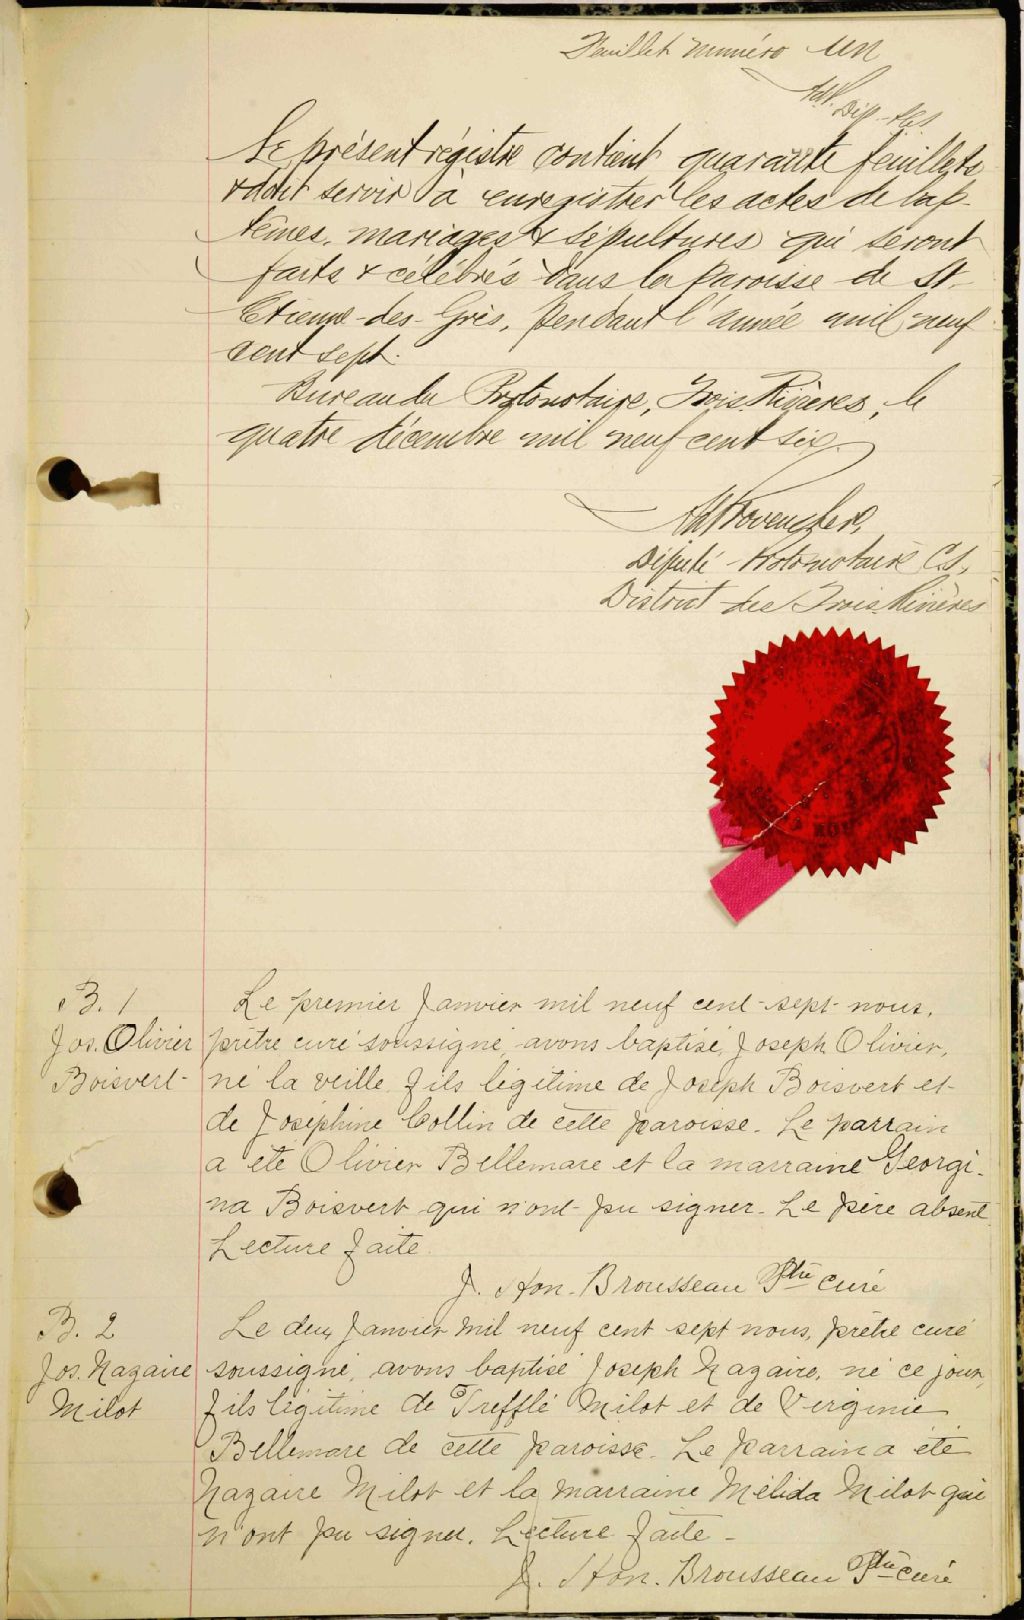 Feuillet numéro un
Dép. P.C.S.
Le présent régistre contient quarante feuillets
& doit servir à enregistrer les actes de bap-
têmes, mariages & sépultures qui seront
faits & célébrés dans la paroisse de St-
Etienne-des-Grès, pendant l'année mil neuf
cent sept.
Bureau du Protonotaire, Trois Rivières, le
quatre décembre mil neuf cent six.
Député Protonotaire C.S.
District des Trois Rivières
B. 1
Jos. Olivier
Boisvert
Le premier Janvier mil neuf cent-sept-nous,
prêtre curé soussigné, avons baptisé, Joseph Olivier,
né la veille, fils légitime de Joseph Boisvert et
de Joséphine Collin de cette paroisse. Le parrain
a été Olivier Bellemare et la marraine Georgi-
na Boisvert qui n'ont pu signer. Le père absent
Lecture faite.
J. Hon. Brousseau Ptre curé
B. 2
Jos. Nazaire
Milot
Le deux Janvier mil neuf cent sept nous, prêtre curé
soussigné, avons baptisé Joseph Nazaire, né ce jour,
fils légitime de Trefflé Milot et de Virginie
Bellemare de cette paroisse. Le parrain a été
Nazaire Milot et la marraine Mélida Milot qui
n'ont pu signer. Lecture faite -
J. Hon. Brousseau Ptre curé